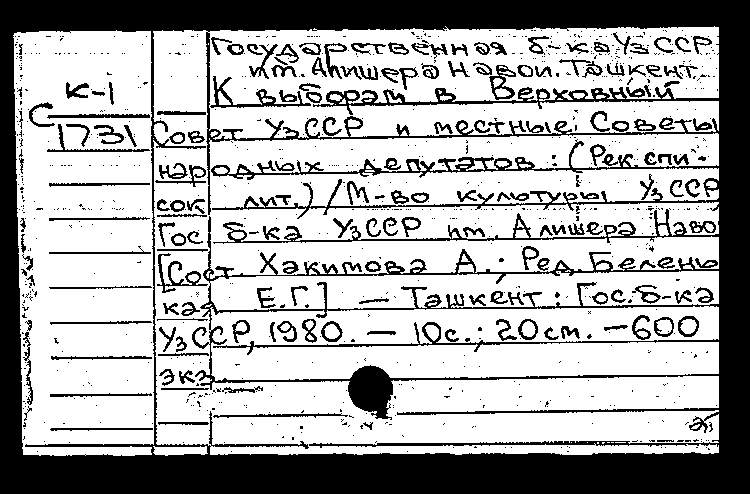 Государственная б-ка УзССР
им. Алишера Навои. Ташкент
К выборам в Верховный
К-1
С
1731
Совет УзССР и местные Советы
народных депутатов: (Рек. спи-
сок лит.) / М-во культуры УзССР
Гос б-ка УзССР им. Алишера Наво
[Сост. Хакимова А.; Ред. Белень
кая Е.Г.] — Ташкент: Гос. б-ка
УзССР, 1980. — 10с.; 20см. — 600
экз.